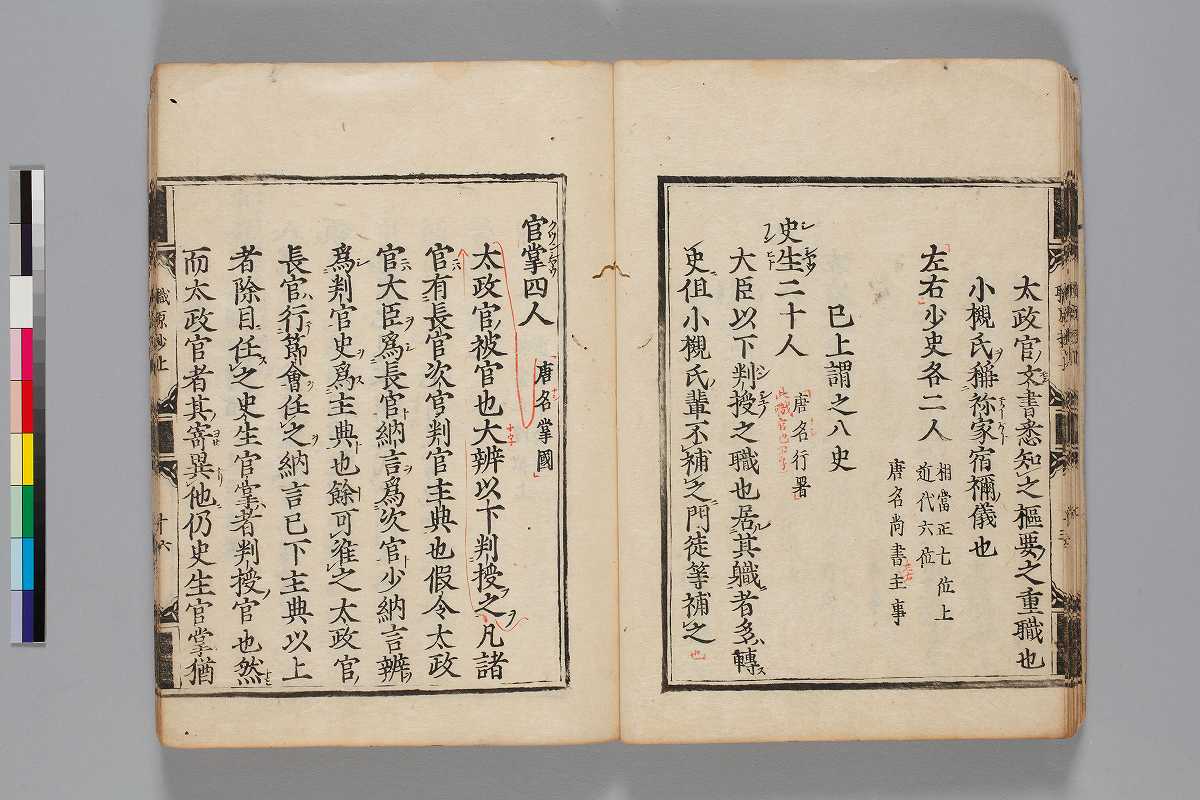 太政官ノ文書悉知之樞要之重職也
小槻氏稱祢家宿禰儀也
左右少史各二人
相當正七位上
近代六位
唐名尚書主事
左右
已上謂之八史
史生二十人
唐名行署
大臣以下判授之職也居其職者多轉
史但小槻氏輩不補之門徒等補之
也
官掌四人
唐名掌國
太政官被官也大辨以下判授之凡諸
十字
官有長官次官判官主典也假令太政
官大臣爲長官納言爲次官少納言辨
爲判官史爲主典也餘可准之太政官
長官行節會任之納言已下主典以上
者除目任之史生官掌者判授官也然
而太政官者其寄異他仍史生官掌猶
職原抄上
十六